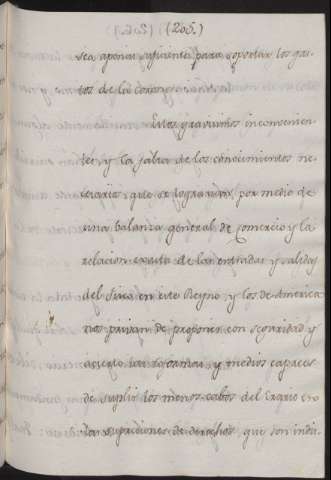 (205.)
sea apenas suficiente para soportar los gas-
tos de la Corona.
Estos gravisimos inconvenien-
tes, y la falta de los conocimientos ne-
cesarios, que se lograrian por medio de
una balanza general de Comercio y la
relacion exacta de las entradas y salidas
del fisco en este Reyno, y los de America
nos privan de proponer con seguridad y
acierto las reformas, y medios capaces
de suplir los menos-cabos del Erario en
las supresiones de derechos, que son indis